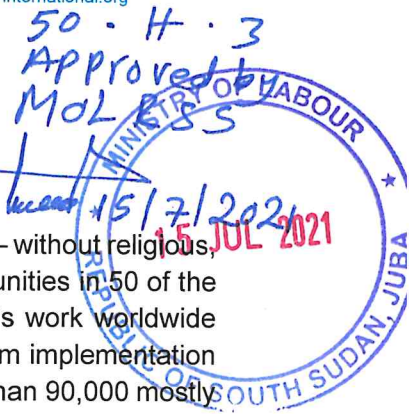 international.org
50 · H · 3
Approved by
MOL RSS
15/7/2021
MINISTRY OF LABOUR
15 JUL 2021
REPUBLIC OF SOUTH SUDAN, JUBA
– without religious,
unities in 50 of the
s work worldwide
m implementation
han 90,000 mostly